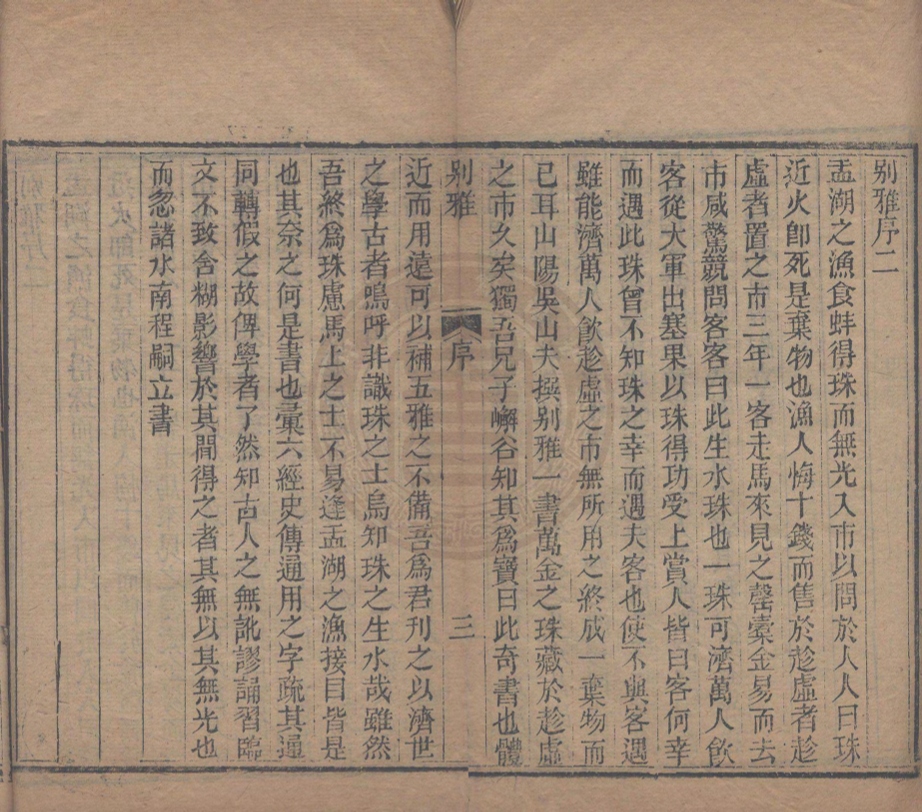 别雅序二
孟湖之漁食蚌得珠而無光入市以問於人人曰珠
近火卽死是棄物也漁人悔十錢而售於趁虛者趁
虛者置之市三年一客走馬來見之罄橐金易而去
市咸驚競問客客曰此生水珠也一珠可濟萬人飮
客從大軍出塞果以珠得功受上賞人皆曰客何幸
而遇此珠曾不知珠之幸而遇夫客也使不與客遇
雖能濟萬人飮趁虛之市無所用之終成一棄物而
已耳山陽吳山夫撰别雅一書萬金之珠藏於趁虛
之市久矣獨吾兄子嶰谷知其爲寶曰此奇書也體
别雅 序 三
近而用遠可以補五雅之不備吾爲君刊之以濟世
之學古者嗚呼非識珠之士烏知珠之生水哉雖然
吾終爲珠慮馬上之士不易逢孟湖之漁接目皆是
也其奈之何是書也彙六經史傳通用之字疏其通
同轉假之故俾學者了然知古人之無訛謬誦習臨
文不致含糊影響於其間得之者其無以其無光也
而忽諸水南程嗣立書